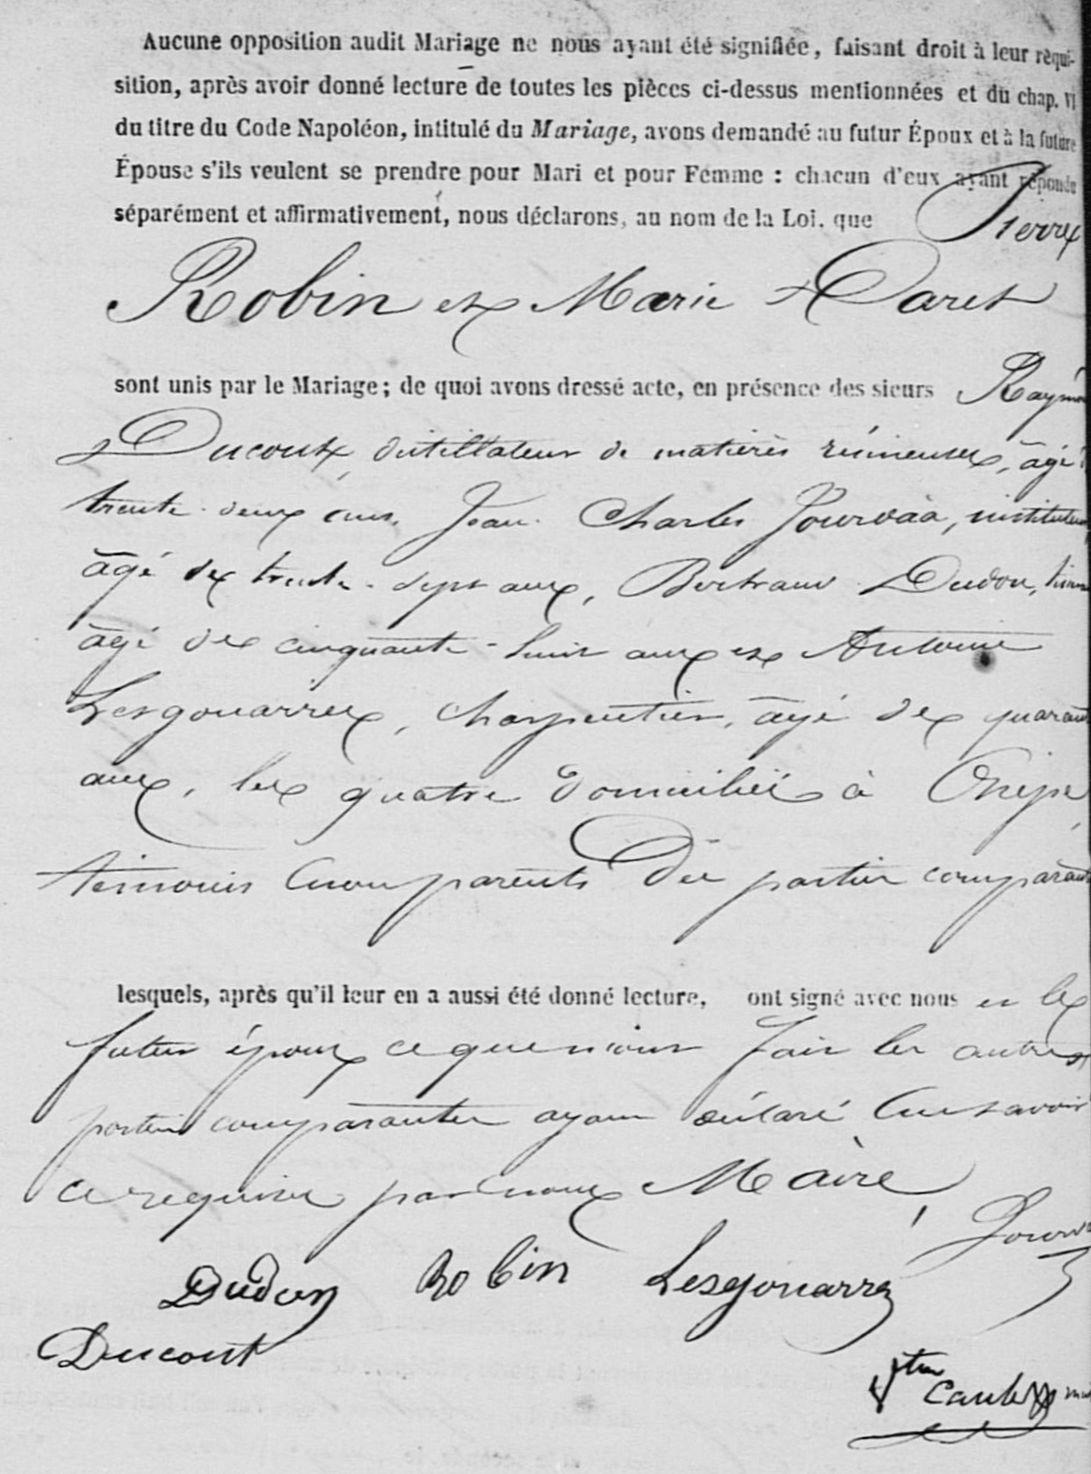 Aucune opposition audit Mariage ne nous ayant été signifiée, faisant droit à leur réqui-
sition, après avoir donné lecture de toutes les pièces ci-dessus mentionnées et du chap. VI
du titre du Code Napoléon, intitulé du Mariage, avons demandé au futur Époux et à la future
Épouse s'ils veulent se prendre pour Mari et pour Femme : chacun d'eux ayant répondu
séparément et affirmativement, nous déclarons, au nom de la Loi, que Pierre
Robin et Marie Daret
sont unis par le Mariage ; de quoi avons dressé acte, en présence des sieurs Raymo
Ducout, distillateur de matières résineuses, âgé
trente-deux ans, Jean Charles Jourdàa, instituteur
âgé de trente-sept ans, Bertrand Dudon,
âgé de cinquante-huit ans et Antoine
Lesgouarre, charpentier, âgé de quaran
ans, les quatre domiciliés à Onesse
témoins non parents des parties comparant
lesquels, après qu'il leur en a aussi été donné lecture, ont signé avec nous et le
futur époux ce que n'ont fait les autres
parties comparantes ayant déclaré ne savoir
ce requises par nous Maire
Dudon Robin Lesgouarre
Ducout